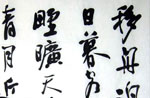 移舟泊
日暮客
野曠天
清月近